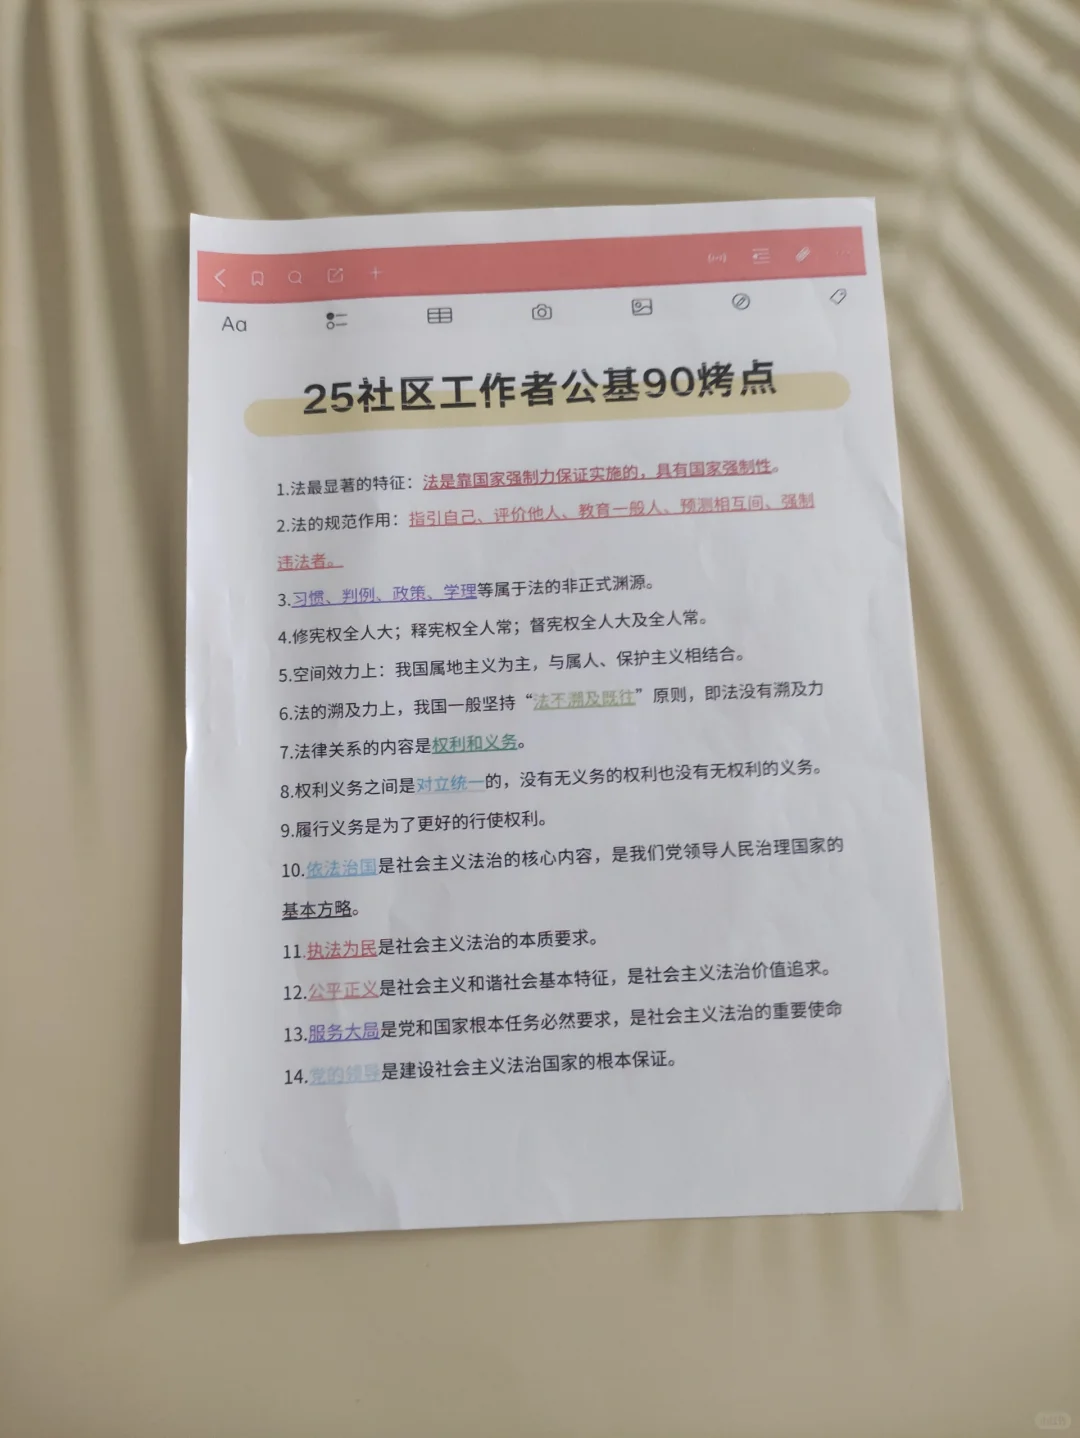 Aa
25社区工作者公基90烤点
1.法最显著的特征：法是靠国家强制力保证实施的，具有国家强制性。
2.法的规范作用：指引自己、评价他人、教育一般人、预测相互间、强制
违法者。
3.习惯、判例、政策、学理等属于法的非正式渊源。
4.修宪权全人大；释宪权全人常；督宪权全人大及全人常。
5.空间效力上：我国属地主义为主，与属人、保护主义相结合。
6.法的溯及力上，我国一般坚持“法不溯及既往”原则，即法没有溯及力
7.法律关系的内容是权利和义务。
8.权利义务之间是对立统一的，没有无义务的权利也没有无权利的义务。
9.履行义务是为了更好的行使权利。
10.依法治国是社会主义法治的核心内容，是我们党领导人民治理国家的
基本方略。
11.执法为民是社会主义法治的本质要求。
12.公平正义是社会主义和谐社会基本特征，是社会主义法治价值追求。
13.服务大局是党和国家根本任务必然要求，是社会主义法治的重要使命
14.党的领导是建设社会主义法治国家的根本保证。
小红书